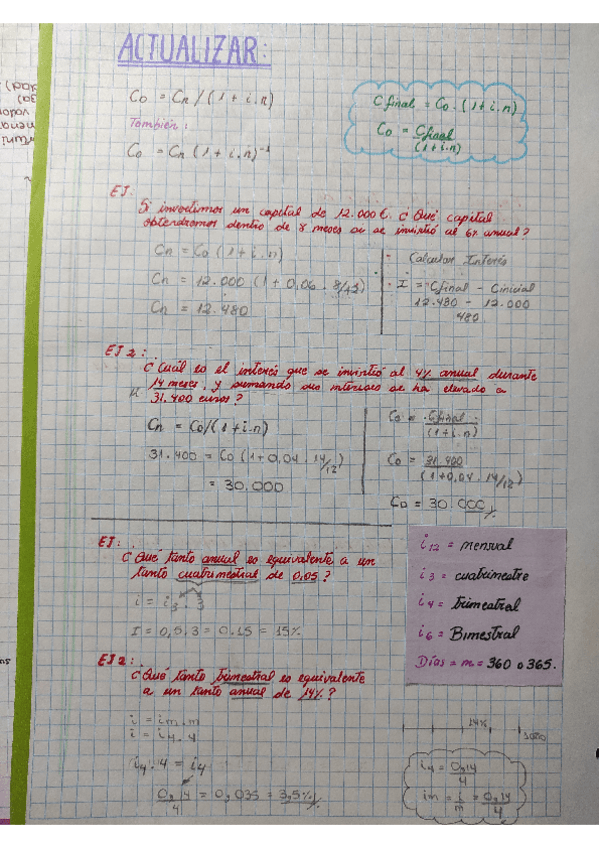 ACTUALIZAR:
Co = Cn / (1 + i.n)
También:
Co = Cn (1 + i.n)⁻¹
Cfinal = Co . (1 + i.n)
Co = Cfinal
(1 + i.n)
EJ.
Si invertimos un capital de 12.000 €. ¿ Qué capital
obtendremos dentro de 8 meses si se invirtió al 6% anual ?
Cn = Co (1 + i.n)
Cn = 12.000 (1 + 0,06 . 8/12)
Cn = 12.480
- Calcular Interés
- I = Cfinal - Cinicial
12.480 - 12.000
480
EJ 2 :
¿ Cuál es el interés que se invirtió al 4% anual durante
14 meses, y sumando sus intereses se ha elevado a
31.400 euros ?
Cn = Co/(1 + i.n)
31.400 = Co (1 + 0,04 . 14/12)
= 30.000
Co = Cfinal
(1 + i.n)
Co = 31.400
(1 + 0,04 . 14/12)
Co = 30.000
EJ :
¿ Qué tanto anual es equivalente a un
tanto cuatrimestral de 0,05 ?
i = i3 . 3
I = 0,5 . 3 = 0.15 = 15%
i12 = mensual
i3 = cuatrimestre
i4 = trimestral
i6 = Bimestral
Días = m = 360 o 365.
EJ 2 :
¿ Qué tanto trimestral es equivalente
a un tanto anual de 14% ?
i = im . m
i = i4 . 4
i4 . 4 = i4
0,14 = 0,035 = 3,5%
4
14%
i4 = 0,14
4
im = i = 0,14
m 4